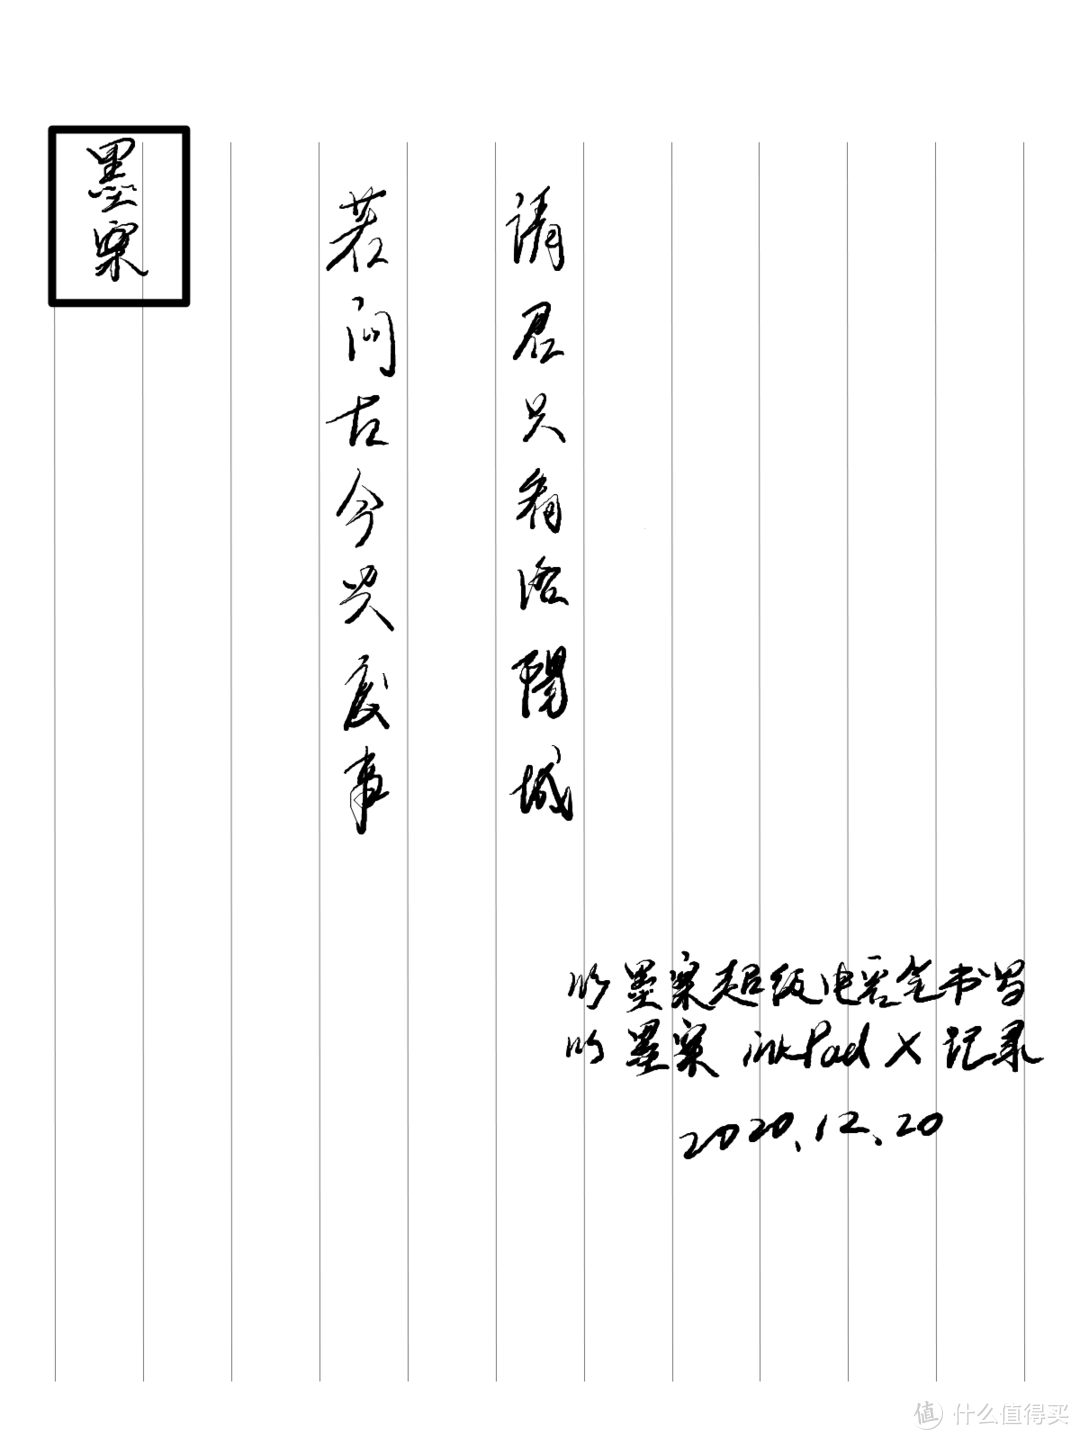 墨案
若问古今兴废事
请君只看洛阳城
以墨案超级电容笔书写
以墨案 inkPad X 记录
2020.12.20
值 什么值得买